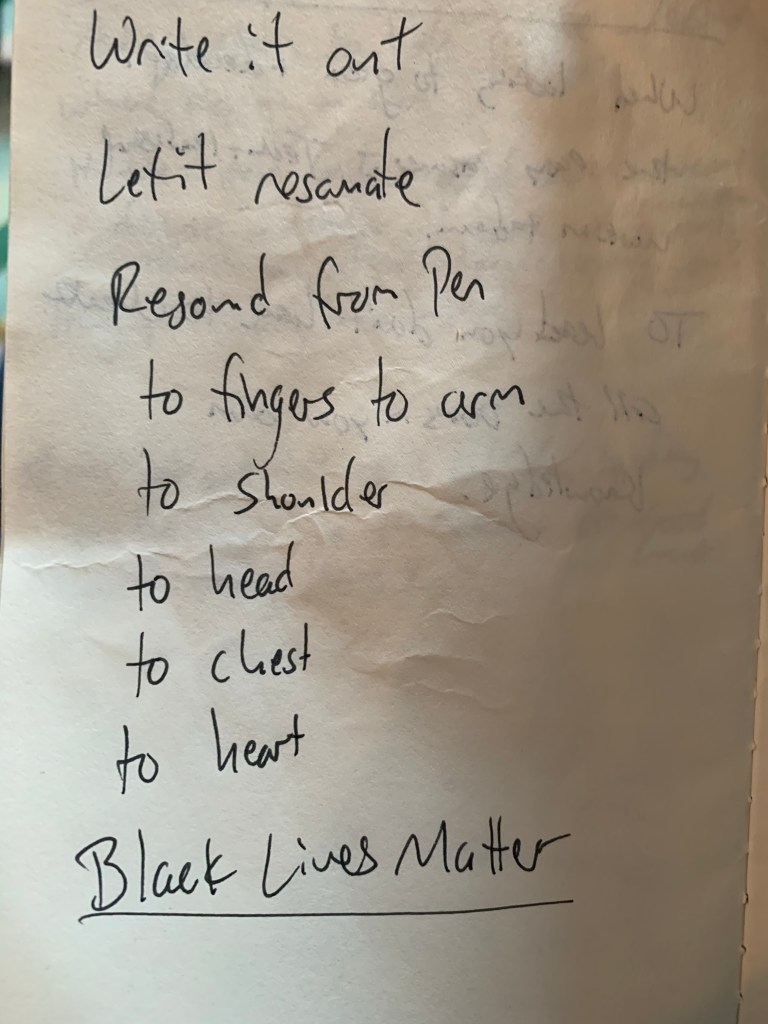 Write it out
Let it resonate
Resound from Pen
to fingers to arm
to shoulder
to head
to chest
to heart
Black Lives Matter